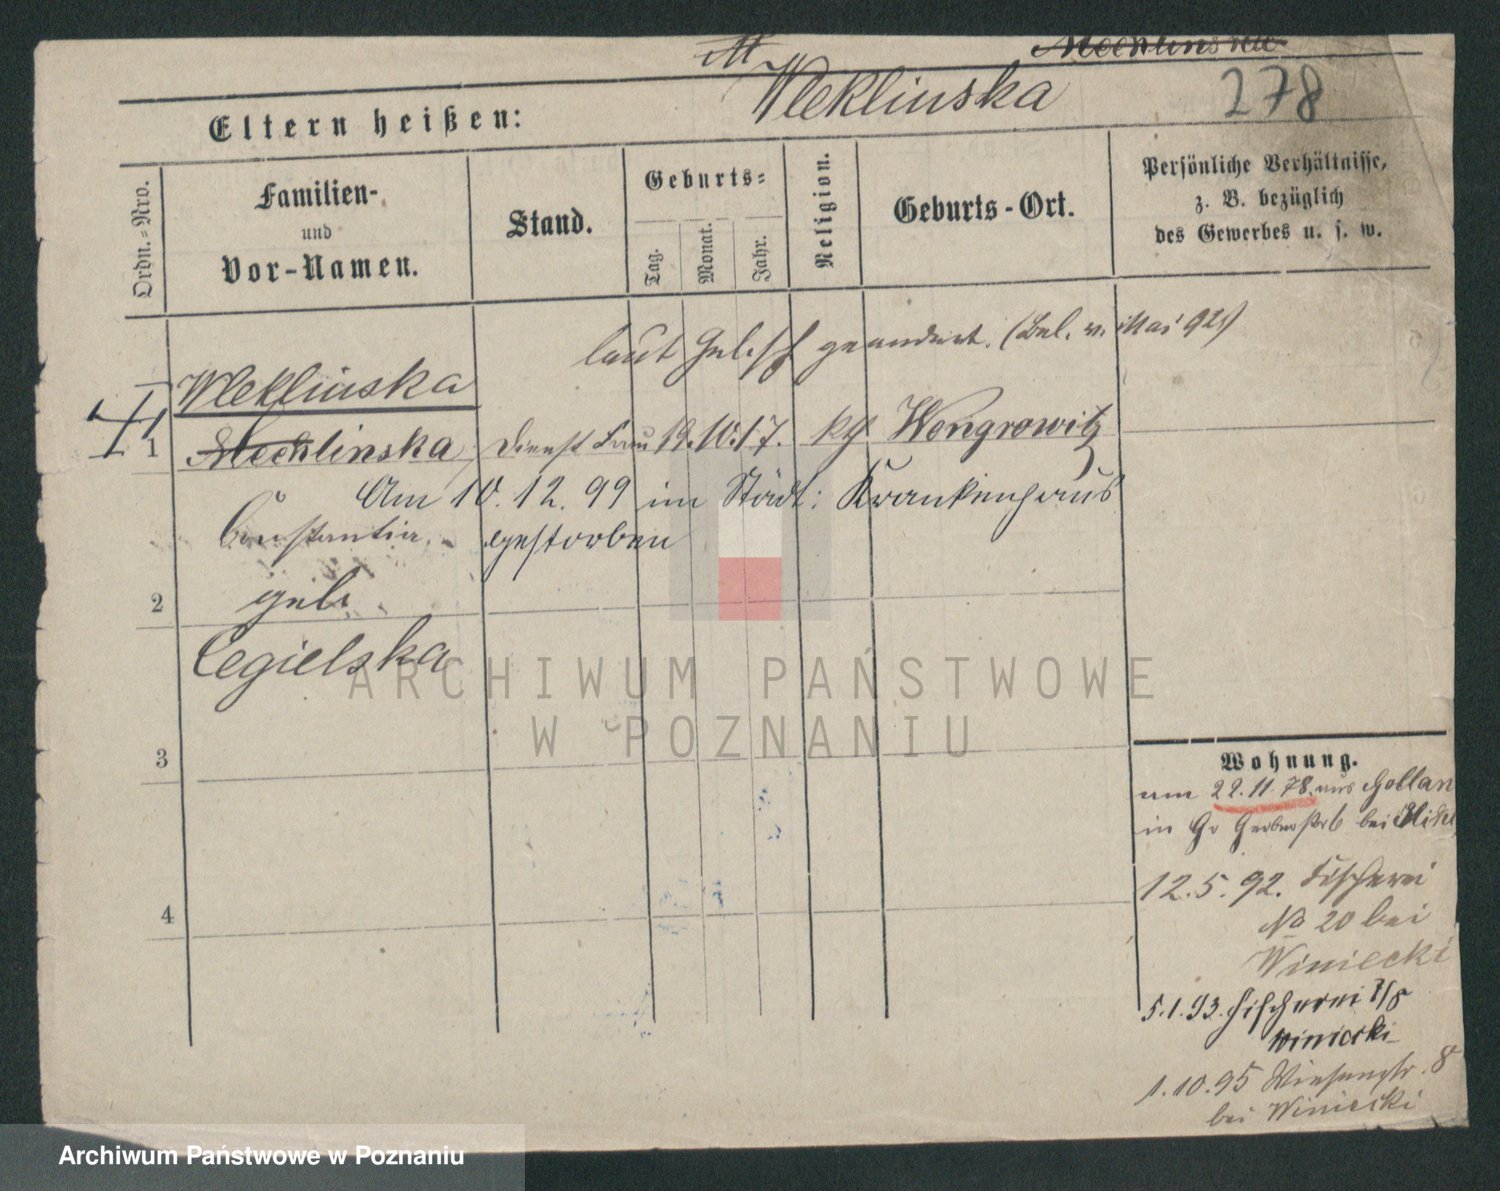 M
Mechlinska
Wleklinska
278
Eltern heißen:
Ordn.=Nro.
Familien-
und
Vor-Namen.
Stand.
Geburts=
Tag.
Monat.
Jahr.
Religion.
Geburts-Ort.
Persönliche Verhältnisse,
z. B. bezüglich
des Gewerbes u. s. w.
laut geändert. (Bel. v. Mai 92)
Wleklinska
1 Mechlinska Dienst Frau 19. 10. 17. kth Wongrowitz
Am 10. 12. 99 im Städt: Krankenhaus
Constantia gestorben
2 geb.
Cegielska
3
4
Wohnung.
am 22.11.78 aus Gollan
in Gr Gerberstr 6 bei
12.5.92. Fischerei
No 20 bei
Winiecki
5.1.93. Fischerei 7/8
Winiecki
1.10.95 Wiesenstr. 8
bei Winiecki
ARCHIWUM PAŃSTWOWE
W POZNANIU
Archiwum Państwowe w Poznaniu